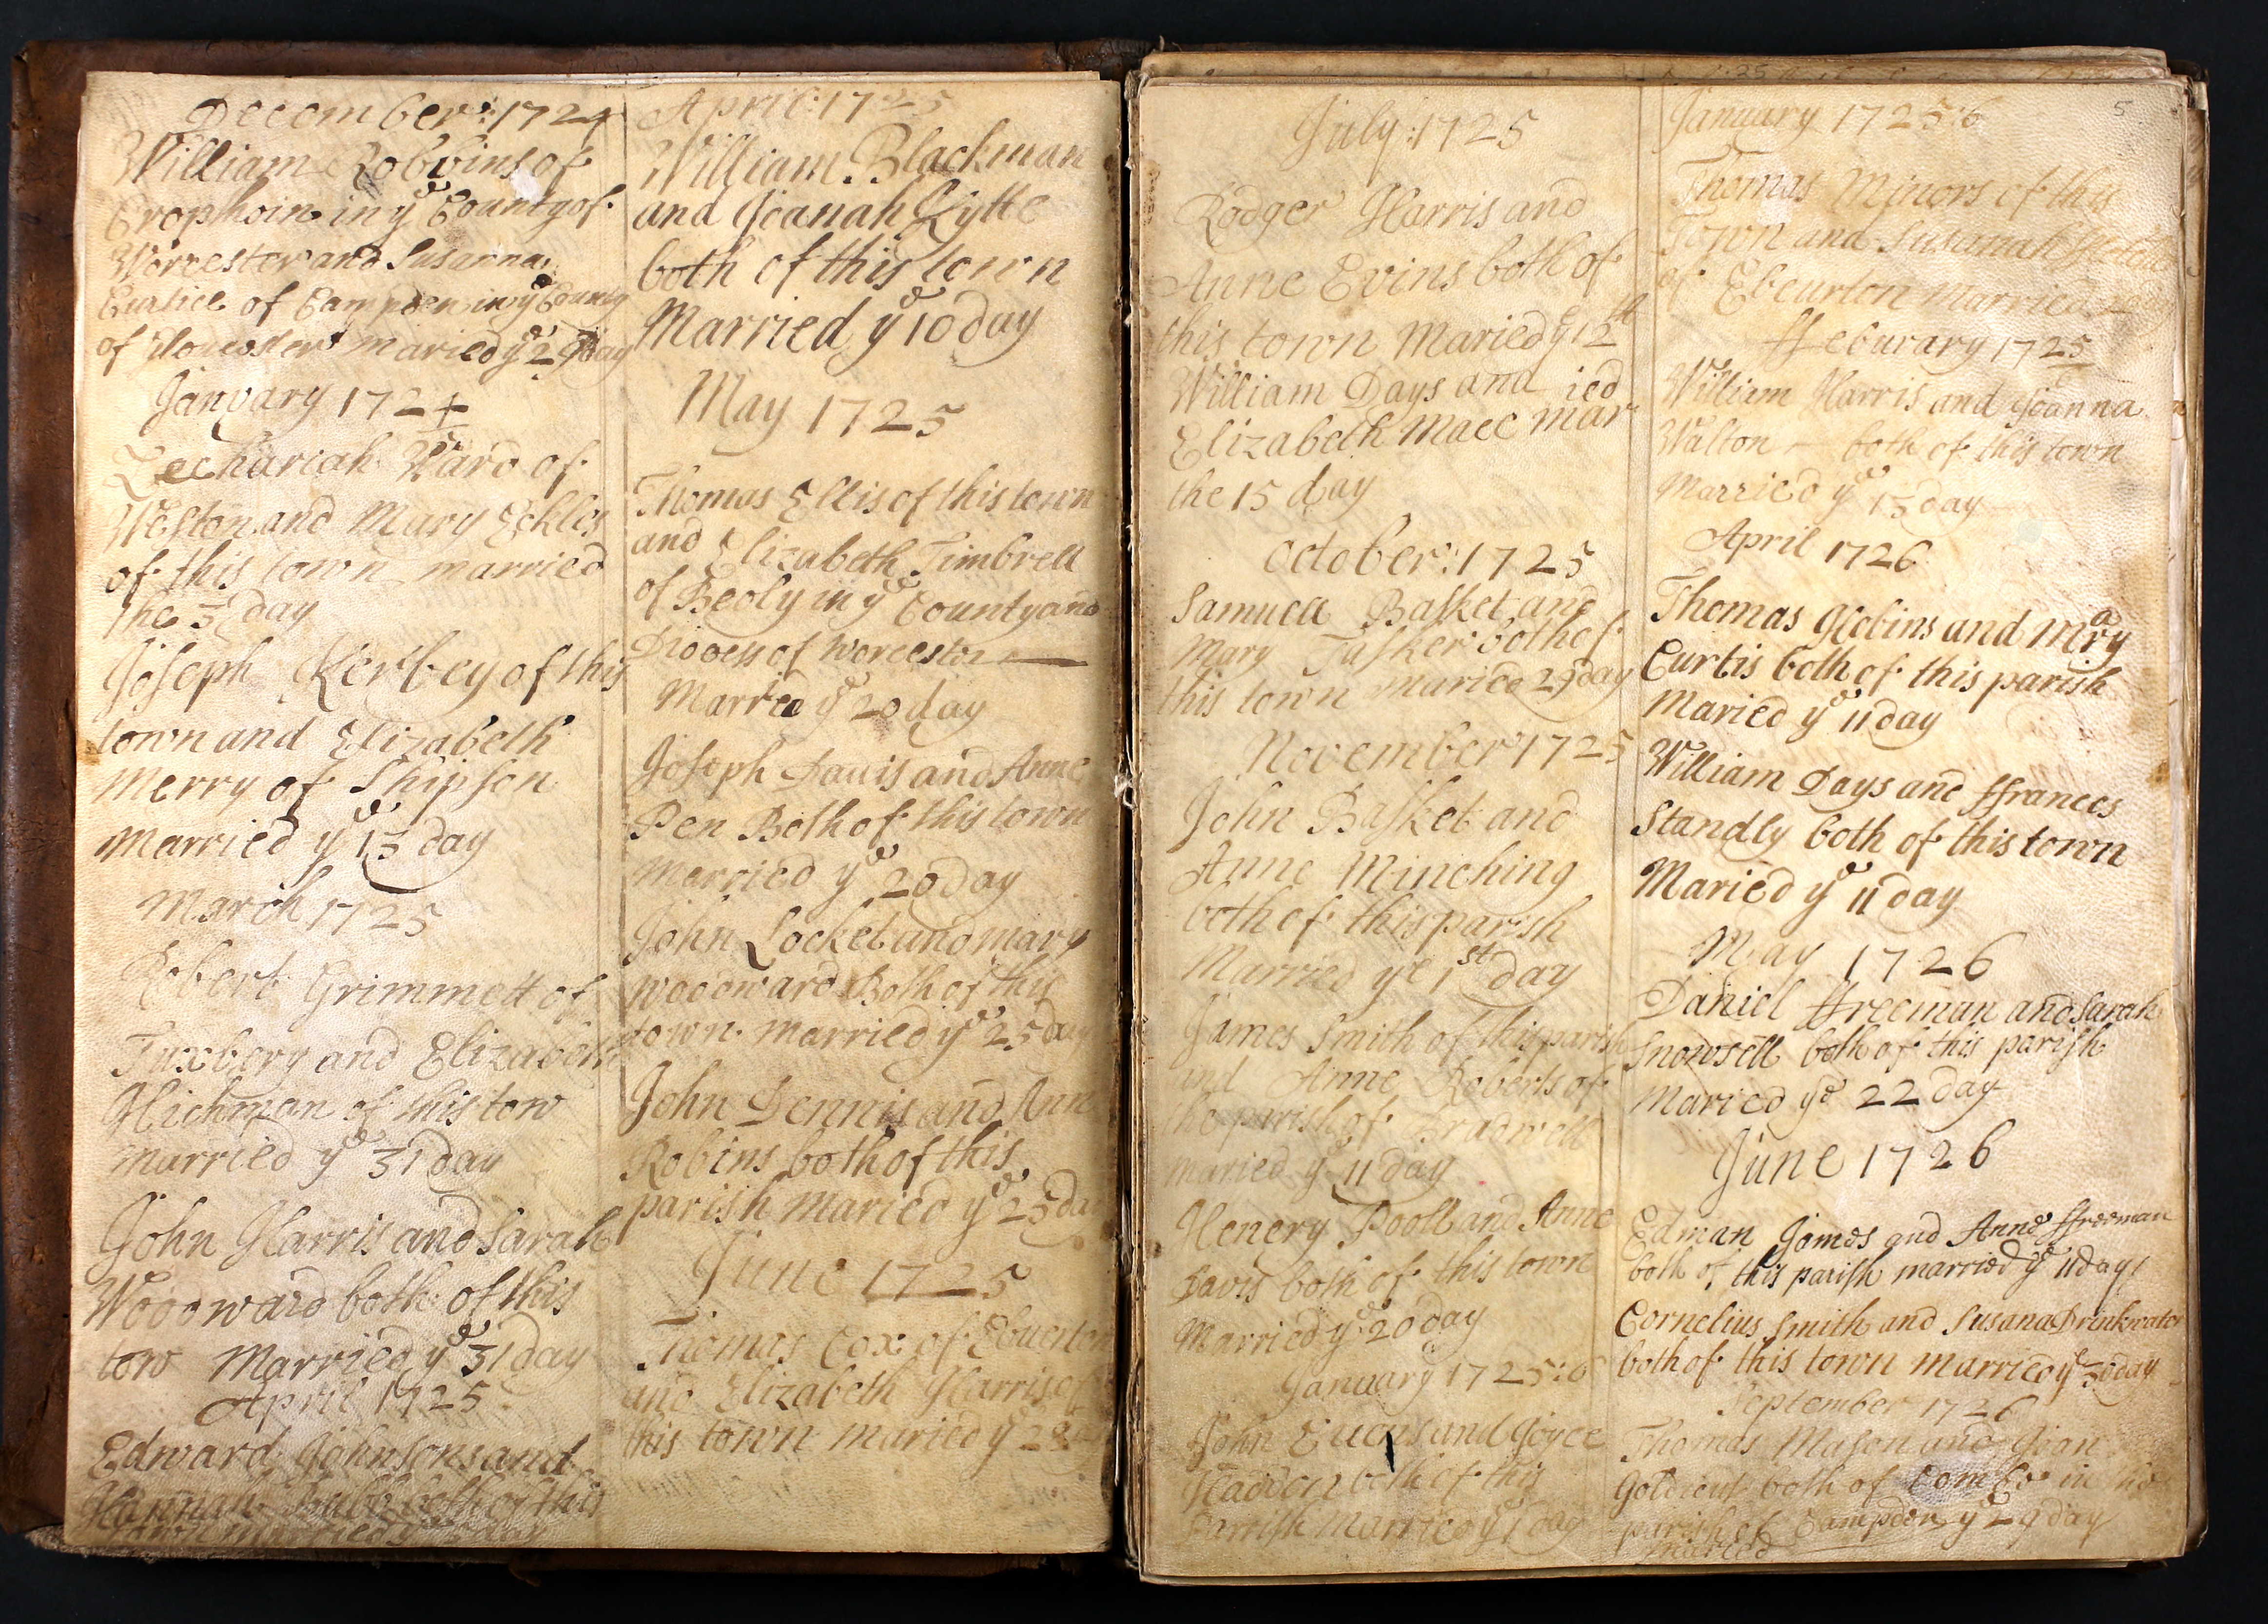 December: 1724
William Robbins of
Crophoin in ye County of
Worcester and Susanna
Curtice of Campden in ye County
of Gloucester maried ye 29 day
January 1724
Zechariah Ward of
Weston and Mary Eckles
of this town married
the 3 day
Joseph Kerbey of this
town and Elizabeth
Merry of Shipson
Married ye 13 day
March 1725
Robert Grimmett of
Tuxbery and Elizabeth
Hichman of this tow
married ye 31 day
John Harris and Sarah
Woodward both of this
tow Married ye 31 day
April 1725
Edward Johnsons and
Hannah both of this
town married ye day
April: 1725
William Blackman
and Joanah Kytte
both of this town
Married ye 10 day
May 1725
Thomas Ellis of this town
and Elizabeth Timbrell
of Beoly in ye County and
Diocess of Worcester
Married ye 20 day
Joseph Dauis and Anne
Pen Both of this town
Married ye 20 day
John Locket and mary
Woodward Both of this
town married ye 25 day
John Dennis and Ann
Robins both of this
parish Maried ye 25 day
June 1725
Thomas Cox of Ebuerton
and Elizabeth Harris of
this town maried ye 28
July: 1725
Rodger Harris and
Anne Evins both of
this town Maried ye 12th
William Days and ied
Elizabeth Mace mar
the 15 day
October: 1725
Samuell Basket and
Mary Tasker both of
this town maried 29 day
November 1725
John Basket and
Anne Minching
both of this parish
Married ye 1st day
James Smith of this parish
and Anne Roberts of
the parish of Bradwell
maried ye 11 day
Henery Pooll and Anne
Davis both of this town
Married ye 20 day
January 1725:6
John Euans and Joyce
Haddon both of this
Parrish Married ye 1 day
5
January 1725:6
Thomas Minors of this
Town and Susannah
of Ebeurton Married
ffeburary 1725
William Harris and Joanna
Walton - both of this town
Married ye 15 day
April 1726
Thomas Hobins and Mary
Curtis both of this parish
Maried ye 11 day
William Days and ffrances
Standly both of this town
Maried ye 11 day
May 1726
Daniel ffreeman and Sarah
Snowsell both of this parish
Maried ye 22 day
June 1726
Edman Jomes and Anne ffreeman
both of this parish married ye 11 day
Cornelius Smith and Susana Drinkwater
both of this town married ye 30 day
September 1726
Thomas Mason and Joan
both of Combe in the
parish of Campden ye 29 day
maried